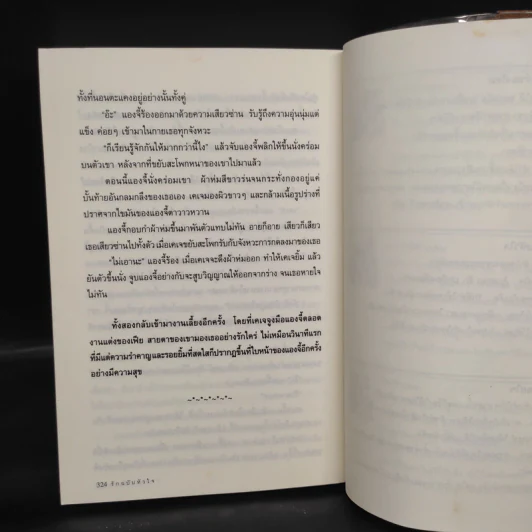 ทั้งที่นอนตะแคงอยู่อย่างนั้นทั้งคู่
"อ๊ะ" แองจี้ร้องออกมาด้วยความเสียวซ่าน รับรู้ถึงความอุ่นนุ่มแต่
แข็ง ค่อยๆ เข้ามาในกายเธอทุกจังหวะ
"ก็เรียนรู้จักกันให้มากกว่านี้ไง" แล้วจับแองจี้พลิกให้ขึ้นนั่งคร่อม
บนตัวเขา หลังจากที่ขยับสะโพกหนาของเขาไปมาแล้ว
ตอนนี้แองจี้นั่งคร่อมเขา ผ้าห่มสีขาวร่นจนกระทั่งกองอยู่แค่
บั้นท้ายอันกลมกลึงของเธอเอง เคเจมองผิวขาวๆ และกล้ามเนื้อรูปร่างที่
ปราศจากไขมันของแองจี้ตาวาวหวาน
แองจี้กอบกำผ้าห่มขึ้นมาพันตัวแทบไม่ทัน อายก็อาย เสียวก็เสียว
เธอเสียวซ่านไปทั้งตัว เมื่อเคเจขยับสะโพกรับกับจังหวะการกดลงมาของเธอ
"ไม่เอานะ" แองจี้ร้อง เมื่อเคเจจะดึงผ้าห่มออก ทำให้เคเจยิ้ม แล้ว
ยันตัวขึ้นนั่ง จูบแองจี้อย่างกับจะสูบวิญญาณให้ออกจากร่าง จนเธอหายใจ
ไม่ทัน
ทั้งสองกลับเข้ามางานเลี้ยงอีกครั้ง โดยที่เคเจจูงมือแองจี้ตลอด
งานแต่งของเฟีย สายตาของเขามองเธออย่างรักใคร่ ไม่เหมือนวินาทีแรก
ที่มีแต่ความรำคาญและรอยยิ้มที่สดใสก็ปรากฏขึ้นที่ใบหน้าของแองจี้อีกครั้ง
อย่างมีความสุข
~*~*~*~*~*~
324